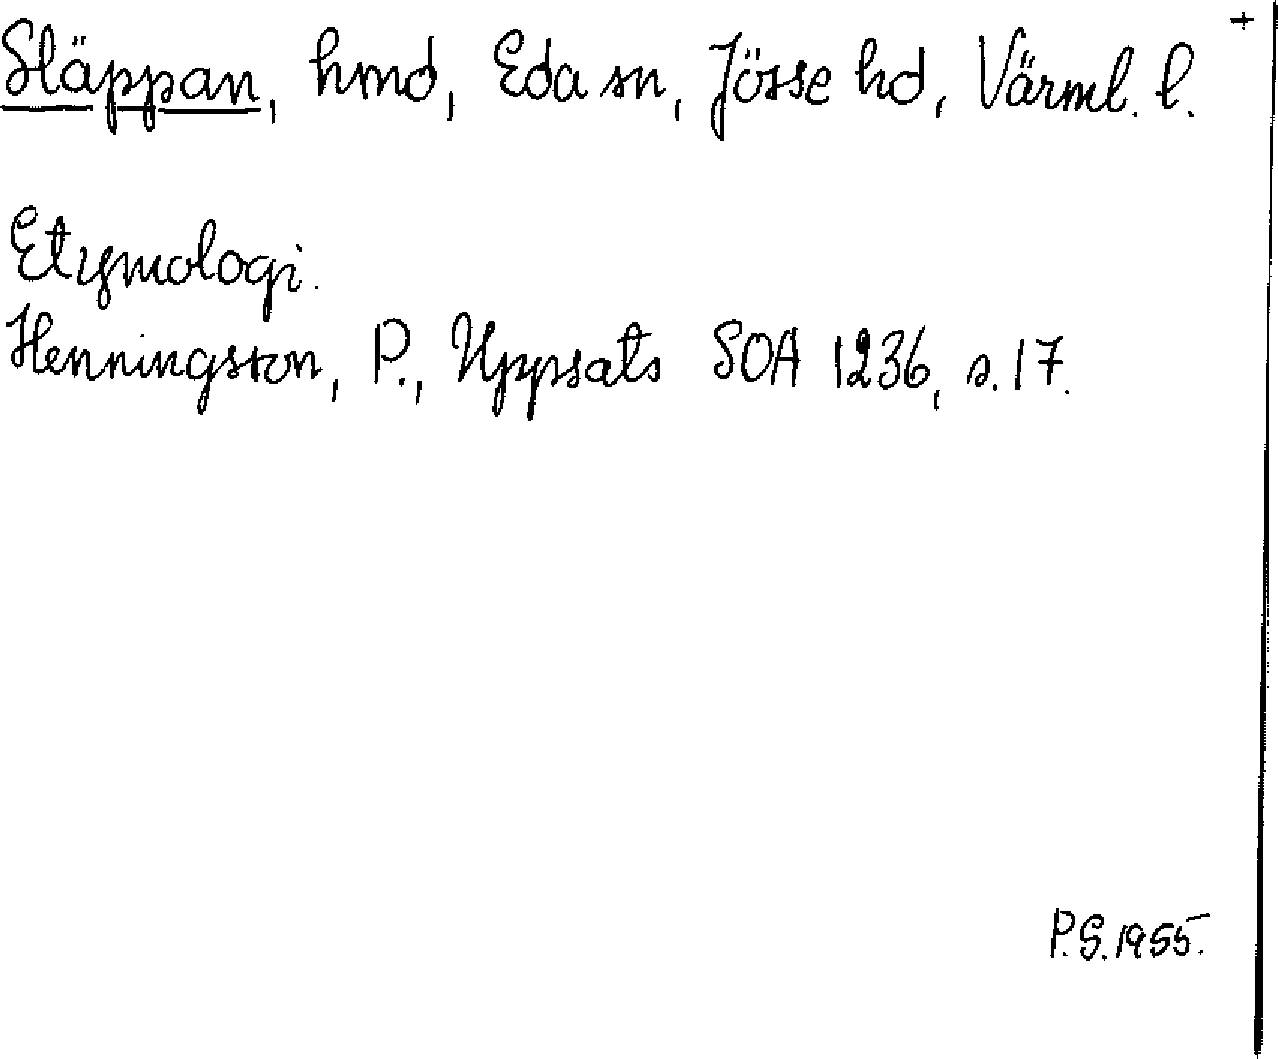 +
Släppan, hmd, Eda sn, Jösse hd, Värml. l.
Etymologi.
Henningsson, P., Uppsats SOA 1236, s. 17.
P.S. 1955.